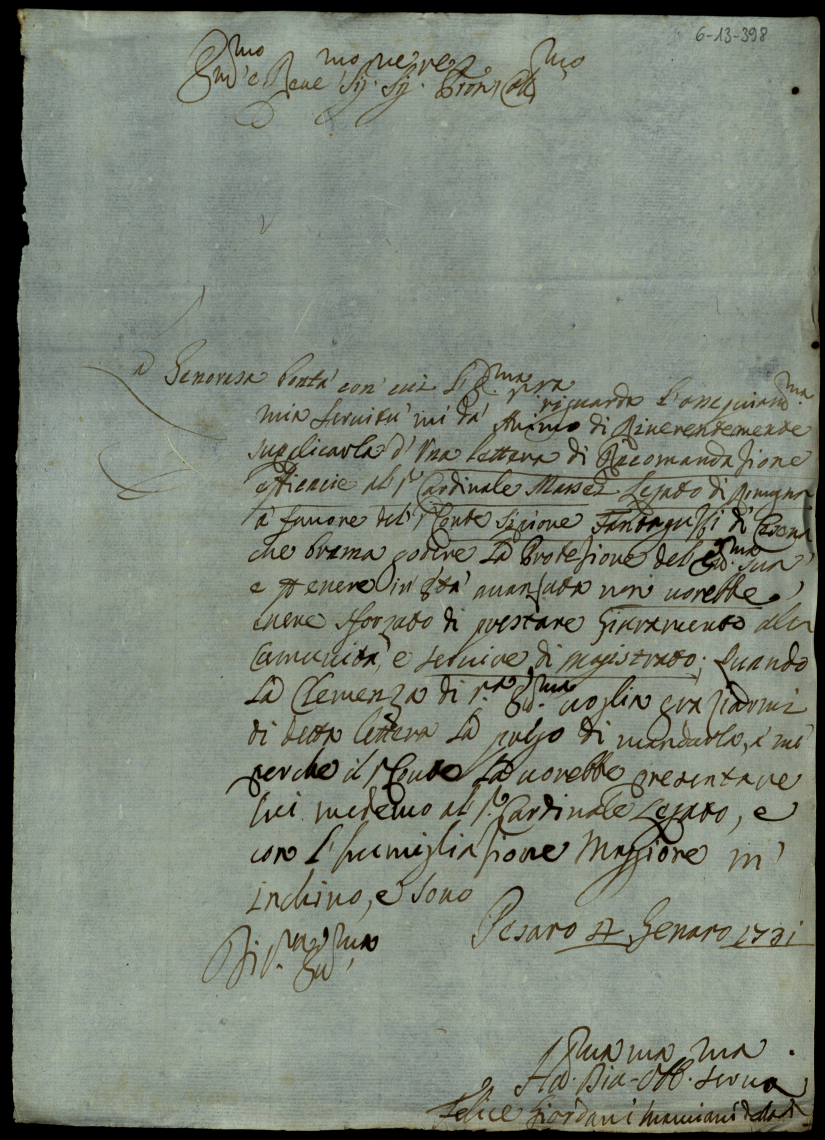 6-13-398
Em.mo e Rev.mo Sig. Sig. Pron Coll.mo
La Generosa bontà con cui L'Em.za v.ra riguarda l'ossequiosiss.ma
mia servitù mi dà Animo di Riverentemente
suplicarla d'Una lettera di Racomandazione
efficacie al S.r Cardinale Massei Legato di Romagna
à favore del S.r Conte Sipione Fantaguzzi di Cesena
che brama godere La Protezione dell'Em.za Sua
e essere in età avanzata non vorebbe,
essere sforzato di prestare Giuramento alla
Comunità, e servire di Magistrato; Quando
La Clemenza di V.ra Em.za voglia graziarmi
di detta lettera La prego di mandarla, à me
perche il S.r Conte La vorebbe presentare
lui medemo al S.r Cardinale Legato, e
con L'humigliazione Maggiore m'
inchino, e sono
Di V.ra Em.za
Pesaro Genaro 1731
Um.ma Di.ma Obb.ma serva
Felice Giordani Mamiani